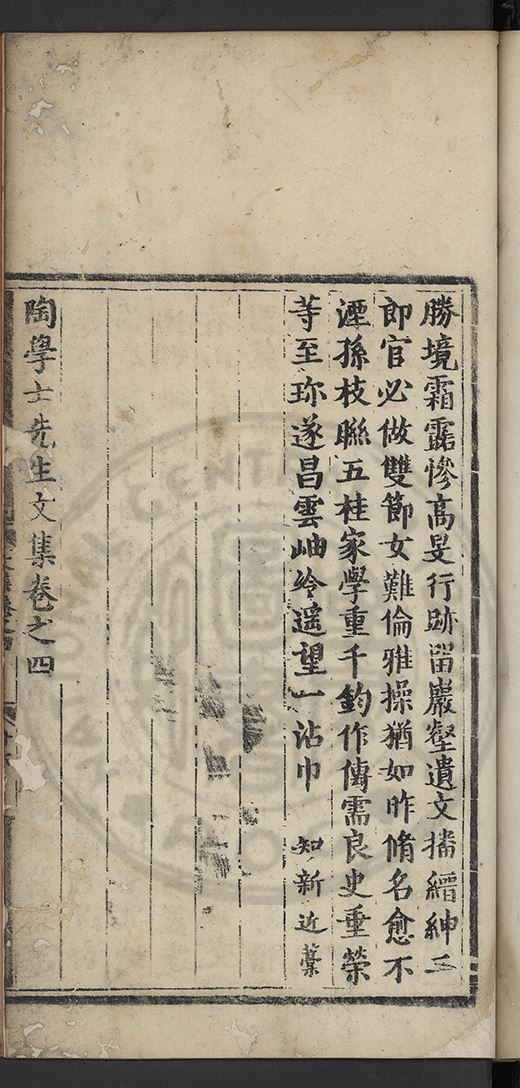 勝境霜露慘高旻行跡留巖壑遺文播縉紳三
郎官必做雙節女難倫雅操猶如昨脩名愈不
湮孫枝聯五桂家學重千鈞作傳需良史垂榮
等至珎遂昌雲岫紟遥望一沾巾 知新近藁
陶學士先生文集卷之四